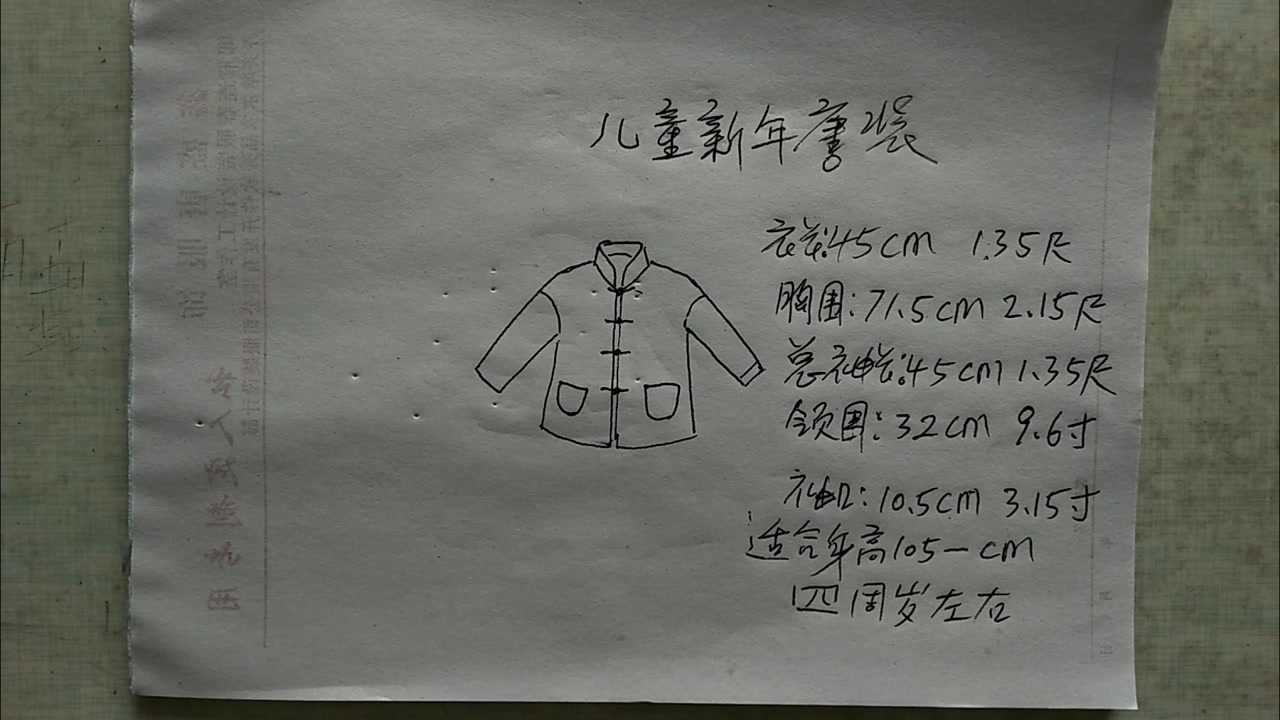 儿童新年唐装
衣长:45cm 1.35尺
胸围:71.5cm 2.15尺
总袖长:45cm 1.35尺
领围:32cm 9.6寸
袖口:10.5cm 3.15寸
适合身高105一cm
四周岁左右